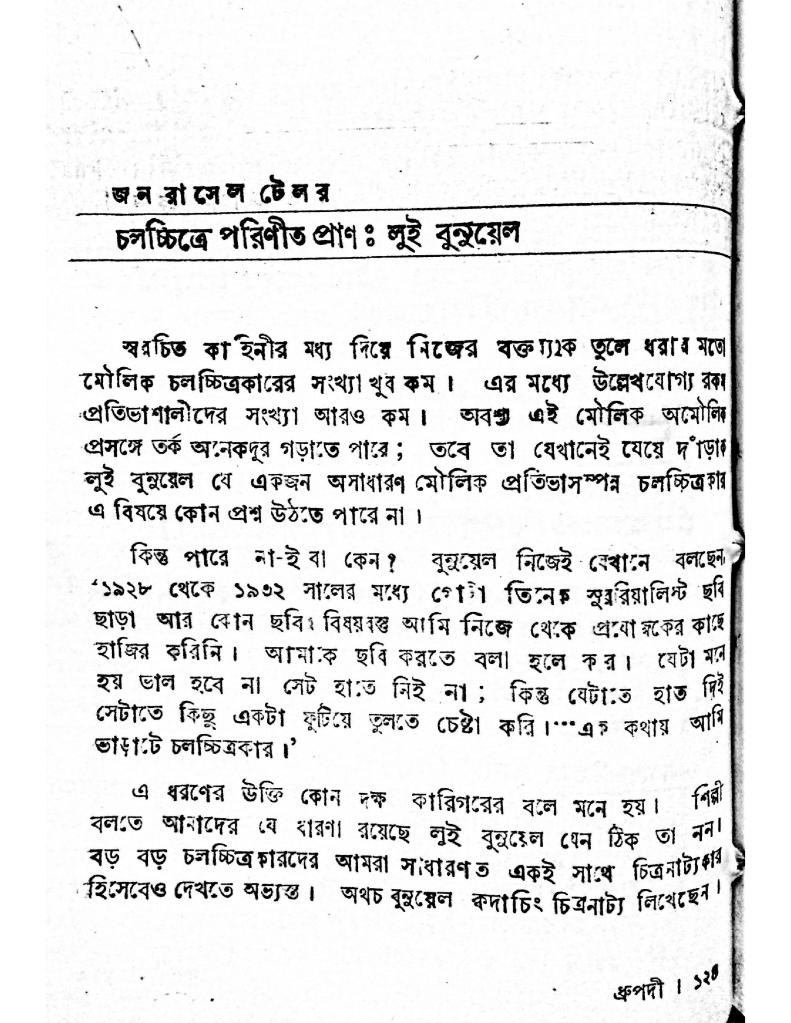 জন রাসেল টেলর
চলচ্চিত্রে পরিণীত প্রাণ : লুই বুনুয়েল
স্বরচিত কাহিনীর মধ্য দিয়ে নিজের বক্তব্যকে তুলে ধরার মতো
মৌলিক চলচ্চিত্রকারের সংখ্যা খুব কম । এর মধ্যে উল্লেখযোগ্য রকম
প্রতিভাশালীদের সংখ্যা আরও কম । অবশ্য এই মৌলিক অমৌলিক
প্রসঙ্গে তর্ক অনেকদূর গড়াতে পারে ; তবে তা যেখানেই যেয়ে দাঁড়াক
লুই বুনুয়েল যে একজন অসাধারণ মৌলিক প্রতিভাসম্পন্ন চলচ্চিত্রকার
এ বিষয়ে কোন প্রশ্ন উঠতে পারে না ।
কিন্তু পারে না-ই বা কেন ? বুনুয়েল নিজেই যেখানে বলছেন,
‘১৯২৮ থেকে ১৯৩২ সালের মধ্যে গোটা তিনেক সুররিয়ালিস্ট ছবি
ছাড়া আর কোন ছবির বিষয়বস্তু আমি নিজে থেকে প্রযোজকের কাছে
হাজির করিনি । আমাকে ছবি করতে বলা হলে করি । যেটা মনে
হয় ভাল হবে না সেটা হাতে নিই না ; কিন্তু যেটাতে হাত দিই
সেটাতে কিছু একটা ফুটিয়ে তুলতে চেষ্টা করি ।…এক কথায় আমি
ভাড়াটে চলচ্চিত্রকার ।’
এ ধরণের উক্তি কোন দক্ষ কারিগরের বলে মনে হয় । শিল্পী
বলতে আমাদের যে ধারণা রয়েছে লুই বুনুয়েল যেন ঠিক তা নন ।
বড় বড় চলচ্চিত্রকারদের আমরা সাধারণত একই সাথে চিত্রনাট্যকার
হিসেবেও দেখতে অভ্যস্ত । অথচ বুনুয়েল কদাচিৎ চিত্রনাট্য লিখেছেন ।
ধ্রুপদী ।